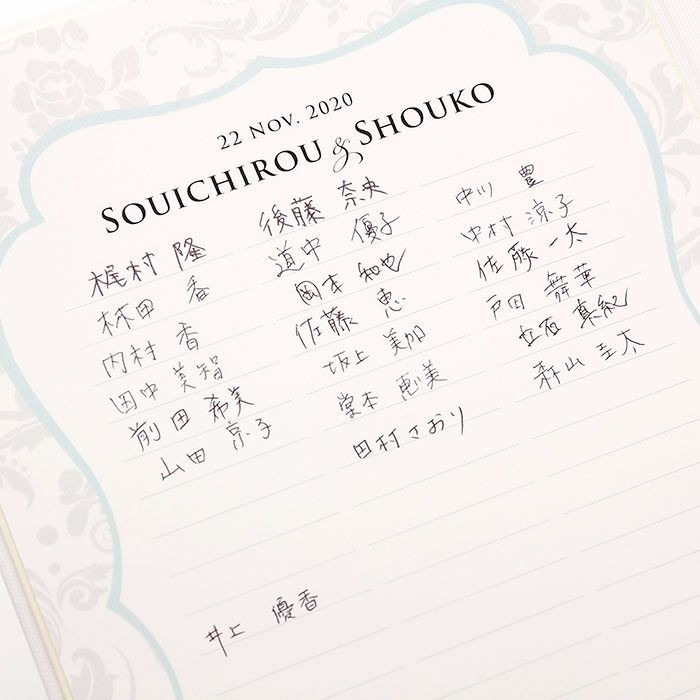 22 Nov. 2020
Souichirou & Shouko
梶村 隆
林田 香
内村 香
田中 美智
前田 希美
山田 京子
井上 優香
後藤 奈央
道中 優子
岡本 和也
佐藤 恵
坂上 美加
堂本 恵美
田村 さおり
中川 豊
中村 涼子
佐藤 一太
戸田 舞華
立石 真紀
森山 圭太